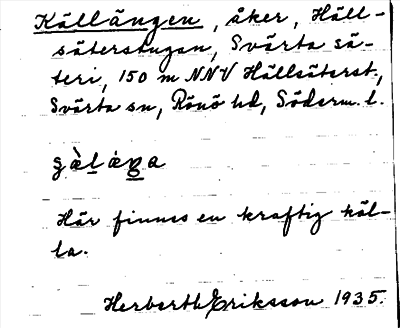 Källängen, åker, Häll-
säterstugan, Svärta sä-
teri, 150 m NNV Hällsäterst.,
Svärta sn, Rönö hd, Söderm. l.
Här finnes en kraftig käl-
la.
Herberth Eriksson 1935.